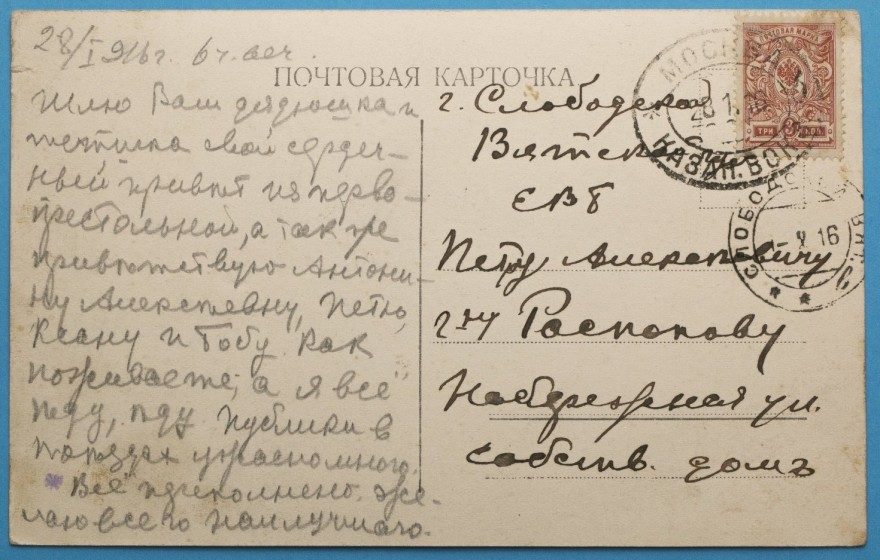 28/I 916 г. 6 ч. веч.
ПОЧТОВАЯ КАРТОЧКА
Шлю Вам дядюшка и
тетушка свой сердеч-
ный привет из перво-
престольной, а так же
приветствую Антони-
ну Алексеевну, Петю,
Ксану и Бобу. Как
поживаете, а я всё
еду, еду. Публики в
поездах ужасно много.
Всё переполнено. Же-
лаю всего наилучшаго.
г. Слободской
Вятск
ЕВБ
Петру Алексеевичу
г-ну Распопову
Набережная ул.
собств. домъ
МОСК
КАЗАН. ВОК
ПОЧТОВАЯ МАРКА
ТРИ 3 КОП.
СЛОБОДС
16